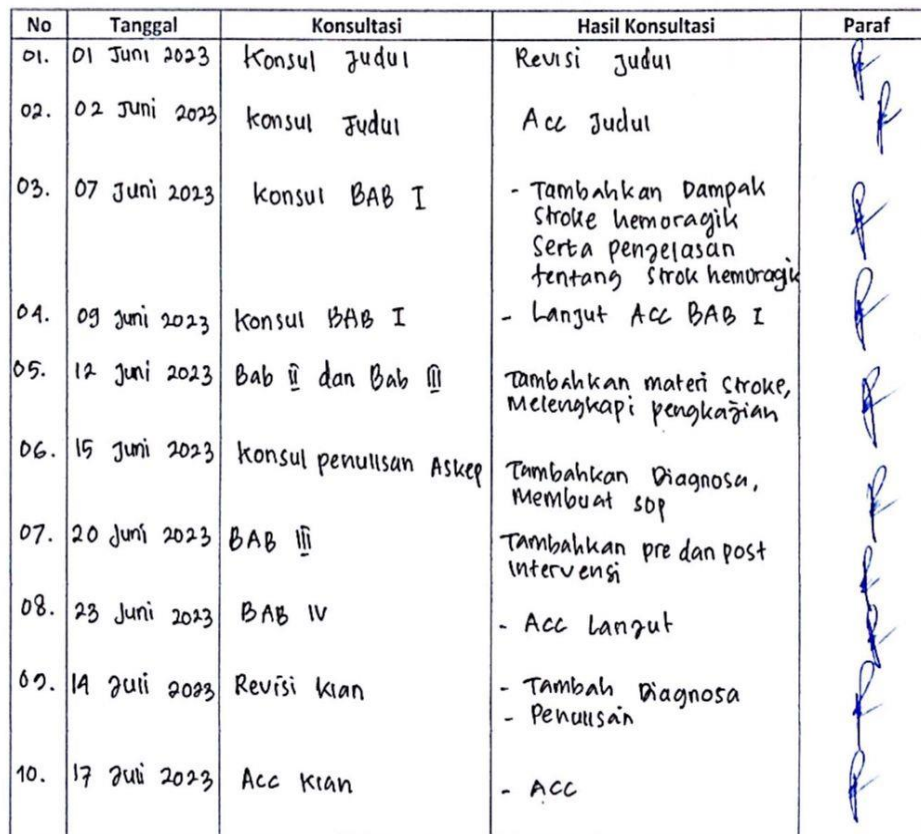 No Tanggal Konsultasi Hasil Konsultasi Paraf
01. 01 Juni 2023 Konsul Judul Revisi Judul
02. 02 Juni 2023 Konsul Judul Acc Judul
03. 07 Juni 2023 Konsul BAB I - Tambahkan Dampak
Stroke hemoragik
Serta penjelasan
tentang Strok hemoragik
04. 09 Juni 2023 Konsul BAB I - Lanjut Acc BAB I
05. 12 Juni 2023 Bab II dan Bab III Tambahkan materi Stroke,
Melengkapi pengkajian
06. 15 Juni 2023 Konsul penulisan Askep Tambahkan Diagnosa,
Membuat SOP
07. 20 Juni 2023 BAB III Tambahkan pre dan post
Intervensi
08. 23 Juni 2023 BAB IV - Acc Lanjut
09. 14 Juli 2023 Revisi Kian - Tambah Diagnosa
- Penulisan
10. 17 Juli 2023 Acc Kian - Acc